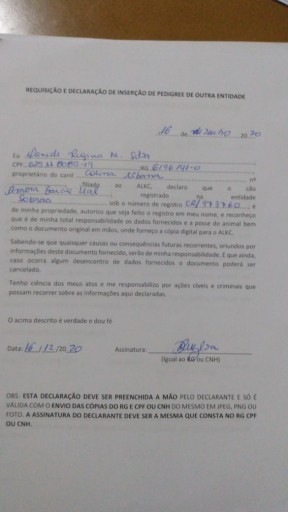 REQUISIÇÃO E DECLARAÇÃO DE INSERÇÃO DE PEDIGREE DE OUTRA ENTIDADE
16 de de 2020
Eu
CPF
proprietário do canil nº
filiado ao ALKC, declaro que o cão
registrado na entidade
sob o número de registro é
de minha propriedade, autorizo que seja feito o registro em meu nome, e reconheço
que é de minha total responsabilidade os dados fornecidos e a posse do animal bem
como o documento original em mãos, onde forneço a cópia digital para o ALKC.
Sabendo-se que quaisquer causas ou consequências futuras recorrentes, oriundos por
informações deste documento fornecido, serão de minha responsabilidade. E que ainda,
caso ocorra algum desencontro de dados fornecidos o documento poderá ser
cancelado.
Tenho ciência dos meus atos e me responsabilizo por ações cíveis e criminais que
possam recorrer sobre as informações aqui declaradas.
O acima descrito é verdade e dou fé
Data: 16 / 12 / 20 20 Assinatura:
(Igual ao RG ou CNH)
OBS: ESTA DECLARAÇÃO DEVE SER PREENCHIDA A MÃO PELO DECLARANTE E SÓ É
VÁLIDA COM O ENVIO DAS CÓPIAS DO RG E CPF OU CNH DO MESMO EM JPEG, PNG OU
FOTO. A ASSINATURA DO DECLARANTE DEVE SER A MESMA QUE CONSTA NO RG CPF
OU CNH.